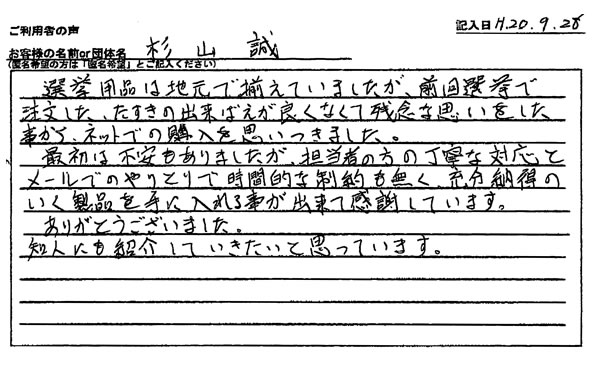 ご利用者の声
記入日 H.20.9.26
お客様の名前or団体名 杉山 誠
(匿名希望の方は「匿名希望」とご記入ください)
選挙用品は地元で揃えていましたが、前回選挙で
注文した、たすきの出来ばえが良くなくて残念な思いをした
事から、ネットでの購入を思いつきました。
最初は不安もありましたが、担当者の方の丁寧な対応と
メールでのやりとりで時間的な制約も無く、充分納得の
いく製品を手に入れる事が出来て感謝しています。
ありがとうございました。
知人にも紹介していきたいと思っています。